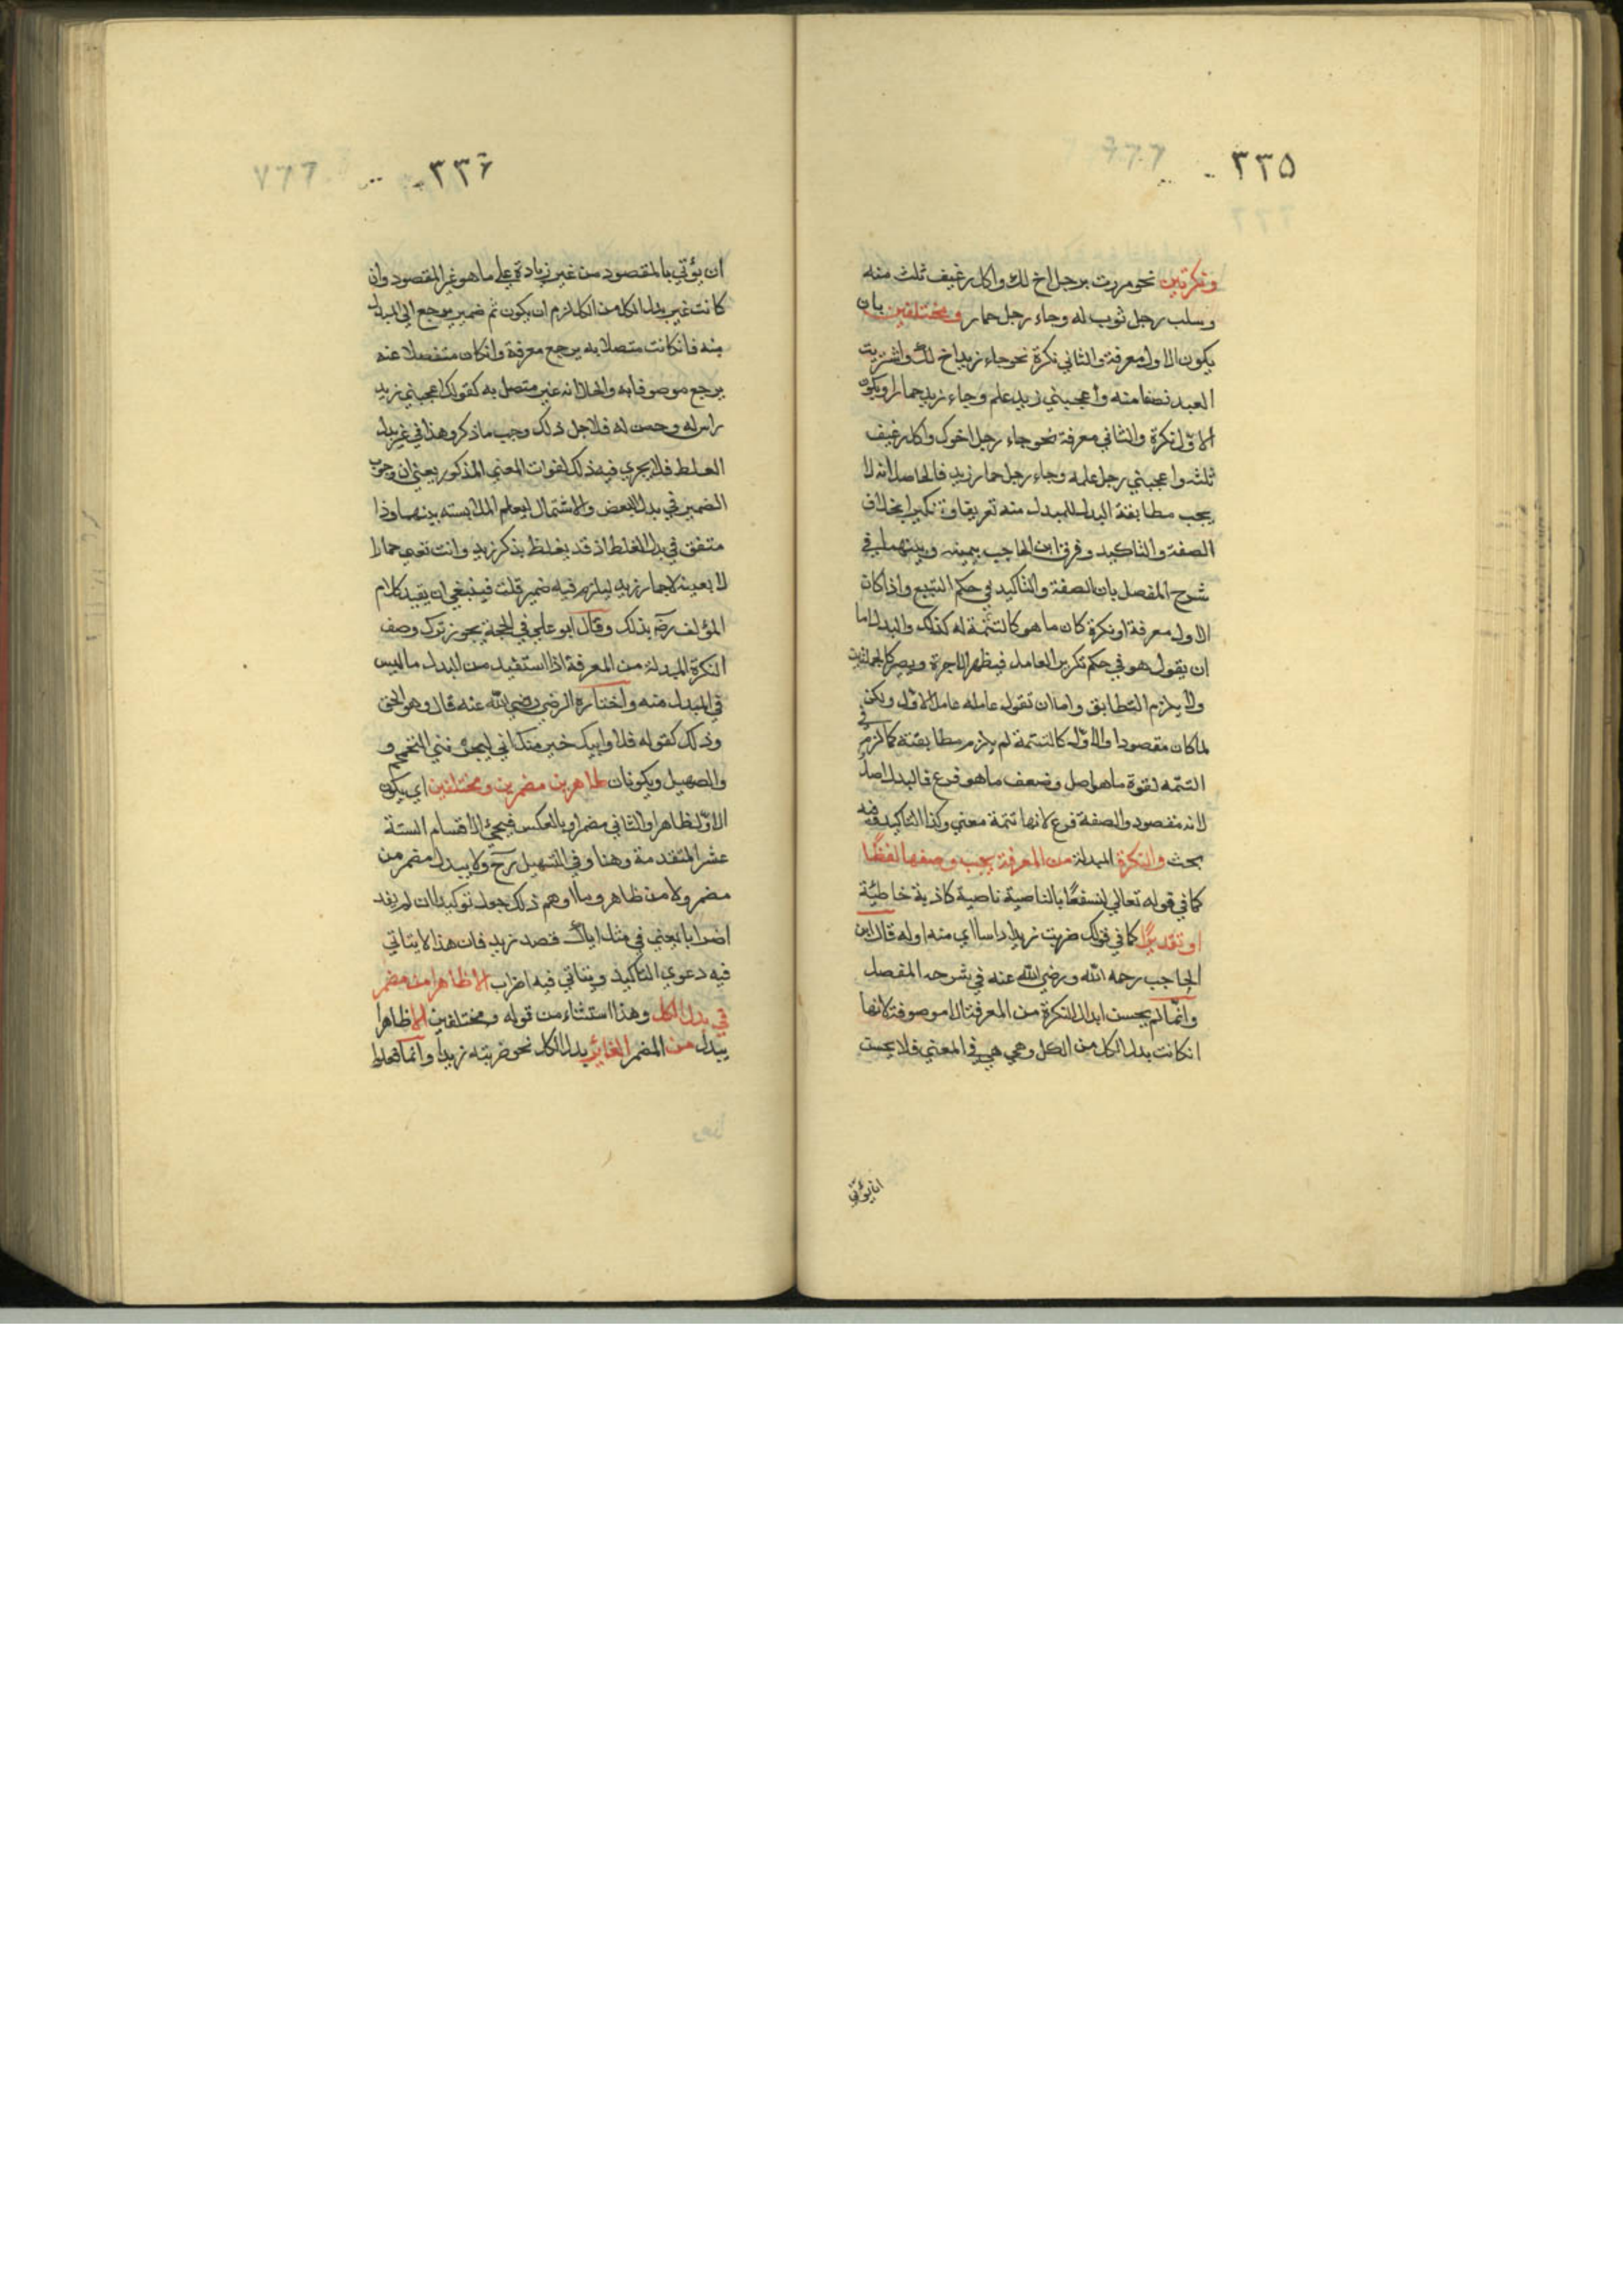 ٣٣٥
ونكرتين نحو مررت برجل اخ لك واكل رغيف ثلث منه
وسلب رجل ثوب له وجاء رجل حمار ومختلفين بان
يكون الاول معرفة والثاني نكرة نحو جاء زيد اخ لك واشتريت
العبد نصفا منه واعجبني زيد علم وجاء زيد حمار او يكون
الاول نكرة والثاني معرفة نحو جاء رجل اخوك واكل رغيف
ثلثه واعجبني رجل علمه وجاء رجل حمار زيد فالحاصل انه لا
يجب مطابقة البدل للمبدل منه تعريفا وتنكيرا بخلاف
الصفة والتاكيد وفرق ابن الحاجب بينه وبينهما في
شرح المفصل بان الصفة والتاكيد في حكم التبيع واذا كان
الاول معرفة او نكرة كان ما هو كالتتمة له كذلك والبدل اما
ان يقول هو في حكم تكرير العامل فيظهر ويصير كالجملتين
ولا يلزم التطابق واما ان تقول عامله عامل الاول ولكن
لما كان مقصودا والاول كالتتمة لم يلزم مطابقته كما لزم في
التتمه لقوة ما هو اصل وضعف ما هو فرع فالبدل اصل
لانه مقصود والصفة فرع لانها تتمة معني وكذا التاكيد وفيه
بحث والنكرة المبدلة من المعرفة يجب وصفها لفظا
كما في قوله تعالي لنسفعا بالناصية ناصية كاذبة خاطئة
او تقديرا كما في قولك ضربت زيدا راسا اي منه اوله قال ابن
الحاجب رحمه الله ورضي الله عنه في شرحه المفصل
وانما لم يحسن ابدال النكرة من المعرفة الا موصوفة لانها
ان كانت بدل الكل من الكل وهي هي في المعني فلا يحسن
ان يؤتي
٣٣٦
ان يؤتي بالمقصود من غير زيادة علي ما هو غير المقصود وان
كانت غير بدل الكل من الكل لزم ان يكون ثم ضمير يرجع الي المبدل
منه فان كانت متصلا به يرجع معرفة وان كان منفصلا عنه
يرجع موصوفا به والحال انه غير متصل به كقولك اعجبني زيد
راس له وحسن له فلاجل ذلك وجب ما ذكر وهذا في غير بدل
الغلط فلا يجري فيه ذلك لفوات المعني المذكور يعني ان وجوب
الضمير في بدل البعض والاشتمال ليعلم الملابسته بينهما وذا
منتفق في بدل الغلط اذ قد يغلظ بذكر زيد وانت تعني حمارا
لا بعينه لا حمار زيد ليلزم فيه ضمير قلت فينبغي ان يقيد كلام
المؤلف رضه بذلك وقال ابو علي في الحجة يجوز ترك وصف
النكرة المبدلة من المعرفة اذا استفيد من البدل ما ليس
في المبدل منه واختاره الرضي رضي الله عنه قال وهو الحق
وذلك كقوله فلا وابيك خير منك اني ليؤذيني التحمحم و
والصهيل ويكونان ظاهرين مضمرين ومختلفين اي يكون
الاول ظاهرا والثاني مضمرا وبالعكس فيجئ الاقسام الستة
عشر المتقدمة وهنا وفي التسهيل رح ولا يبدل مضمر من
مضمر ولا من ظاهر وما اوهم ذلك جعل توكيدا ان لم يفد
اضرابا يعني في مثل اياك قصد زيد فان هذا لا يتاتي
فيه دعوي التاكيد ويتاتي فيه اضراب الا ظاهر من مضمر
في بدل الكل وهذا استثناء من قوله ومختلفين الا ظاهرا
يبدل من المضمر الغائب بدل الكل نحو ضربته زيدا وانما